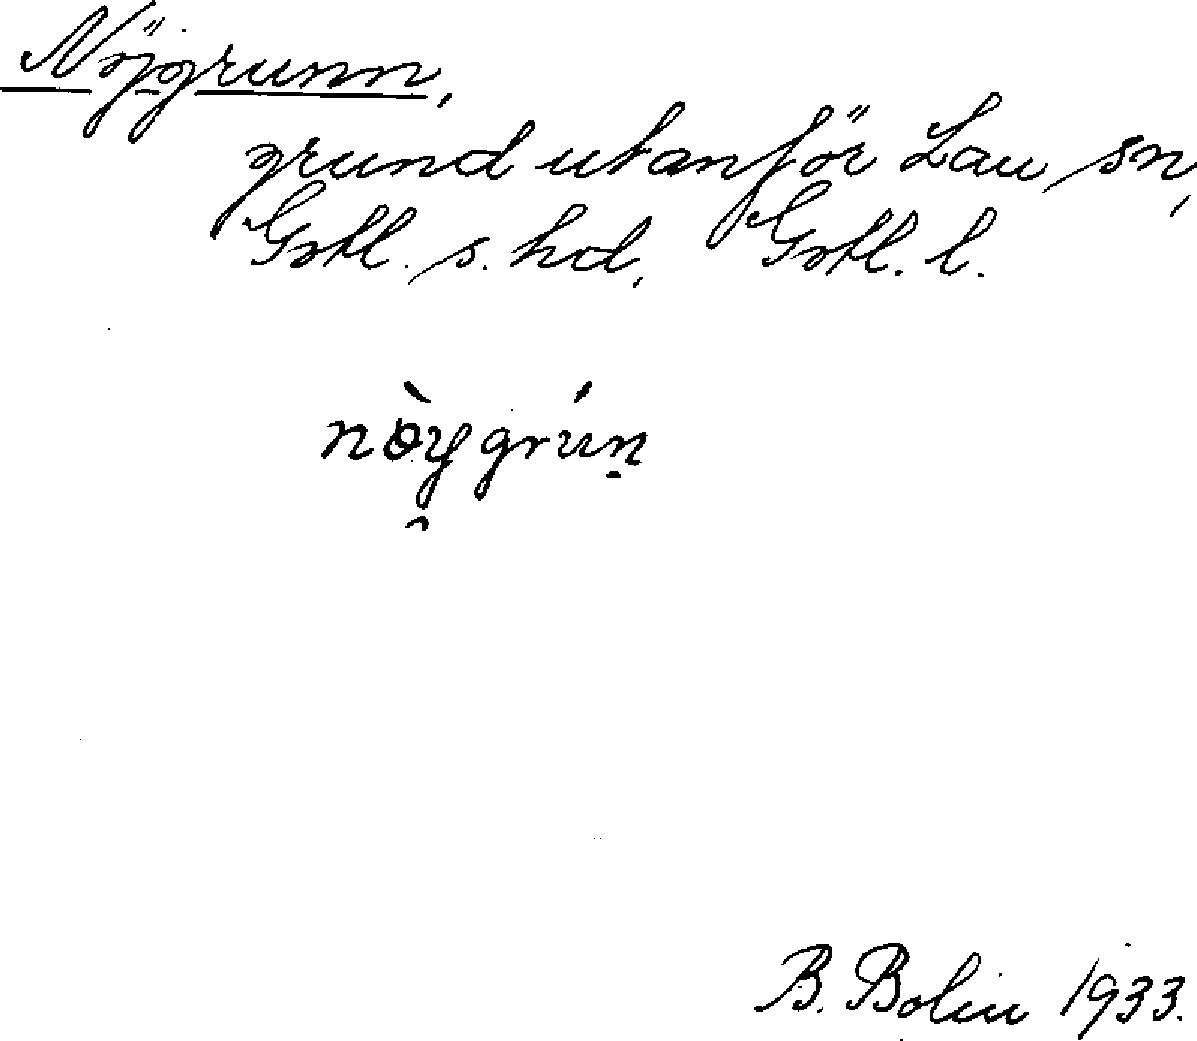 Nöjgrunn,
grund utanför Lau sn,
Gotl. s. hd, Gotl. l.
nòy̯grún̠
B. Bolin 1933.